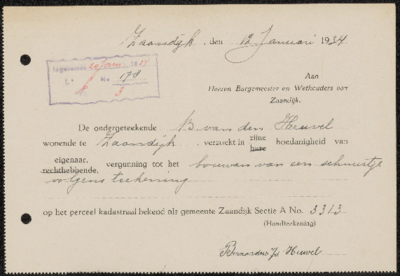 Zaandijk, den 12 Januari 1934
Ingekomen
No. 178
3
Aan
Heeren Burgemeester en Wethouders van
Zaandijk.
De ondergeteekende B van den Heuvel
wonende te Zaandijk, verzoekt in zijne hoedanigheid van
hare
eigenaar,
rechthebbende, vergunning tot het bouwen van een schuurtje
volgens teekening
op het perceel kadastraal bekend als gemeente Zaandijk Sectie A No. 3313
(Handteekening)
Heuvel